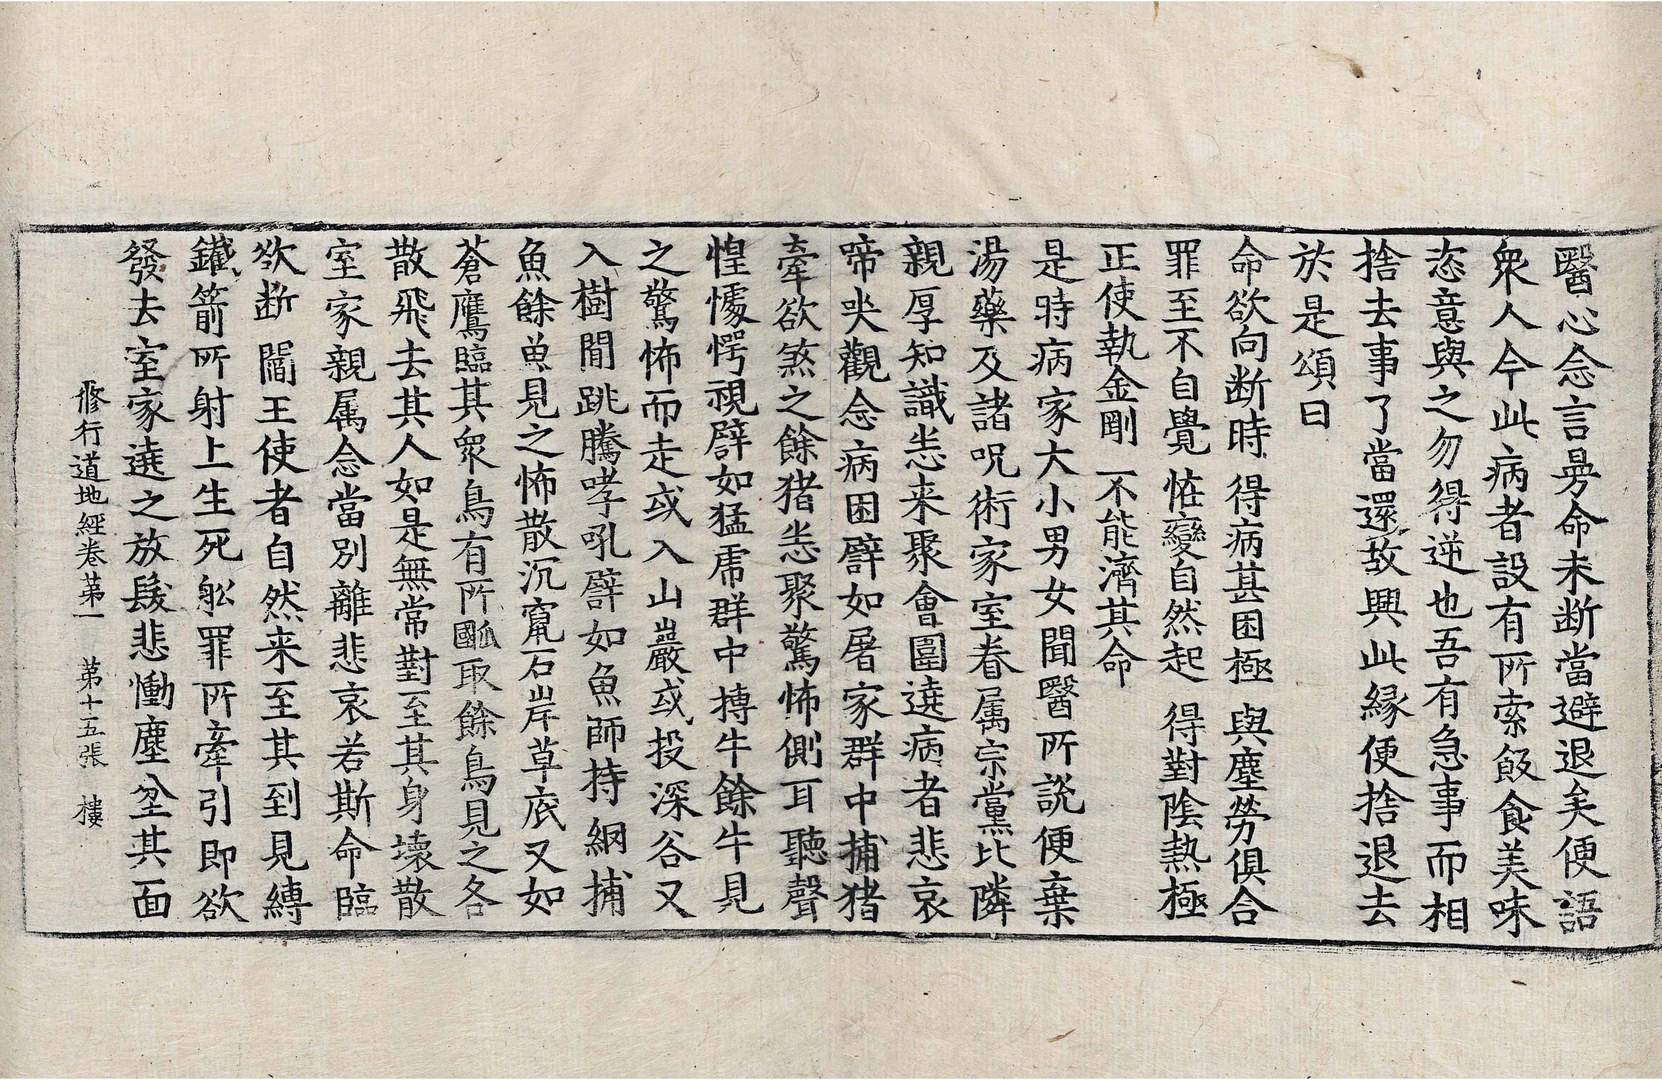 醫心念言曼命未断當避退矣便語
衆人今此病者設有所索飯食美味
恣意與之勿得逆也吾有急事而相
捨去事了當還故興此縁便捨退去
於是頌曰
命欲向断時 得病甚困極 與塵勞俱合
罪至不自覺 恠變自然起 得對陰熱極
正使執金剛 不能濟其命
是時病家大小男女聞醫所說便棄
湯藥及諸呪術家室眷属宗黨比隣
親厚知識悉来聚會圍遶病者悲哀
啼哭觀念病困譬如屠家群中捕猪
牽欲煞之餘猪悉聚驚怖側耳聽聲
惶懅愕視譬如猛虎群中搏牛餘牛見
之驚怖而走或入山巖或投深谷又
入樹間跳騰哮吼譬如魚師持網捕
魚餘魚見之怖散沉竄石岸草底又如
蒼鷹臨其衆鳥有所㼌取餘鳥見之各
散飛去其人如是無常對至其身壊散
室家親属念當別離悲哀若斯命臨
欲断閻王使者自然来至其到見縛
鐵箭所射上生死舩罪所牽引即欲
發去室家遶之放髮悲慟塵坌其面
脩行道地經卷第一 第十五張 樓